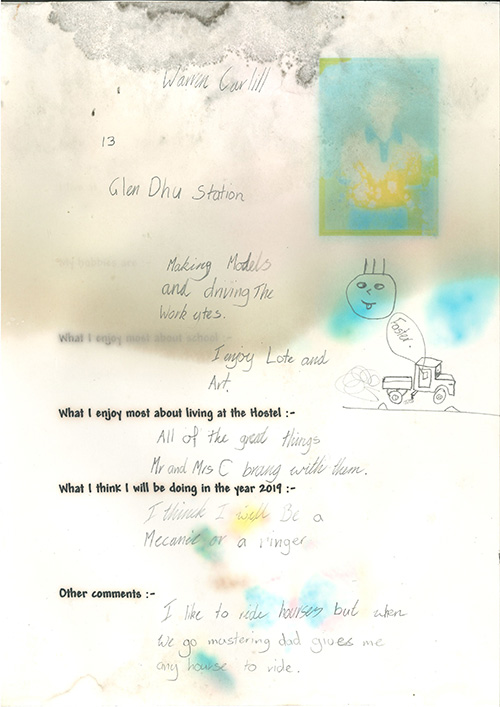 Warren Curlill
13
Glen Dhu Station
Making Models
and driving The
Work utes.
What I enjoy most about school
I enjoy Lote and
Art.
Faster.
What I enjoy most about living at the Hostel :-
All of the great things
Mr and Mrs C brang with them.
What I think I will be doing in the year 2019 :-
I think I will Be a
Mecanic or a ringer
Other comments :-
I like to ride hourses but when
we go mustering dad gives me
any hourse to ride.